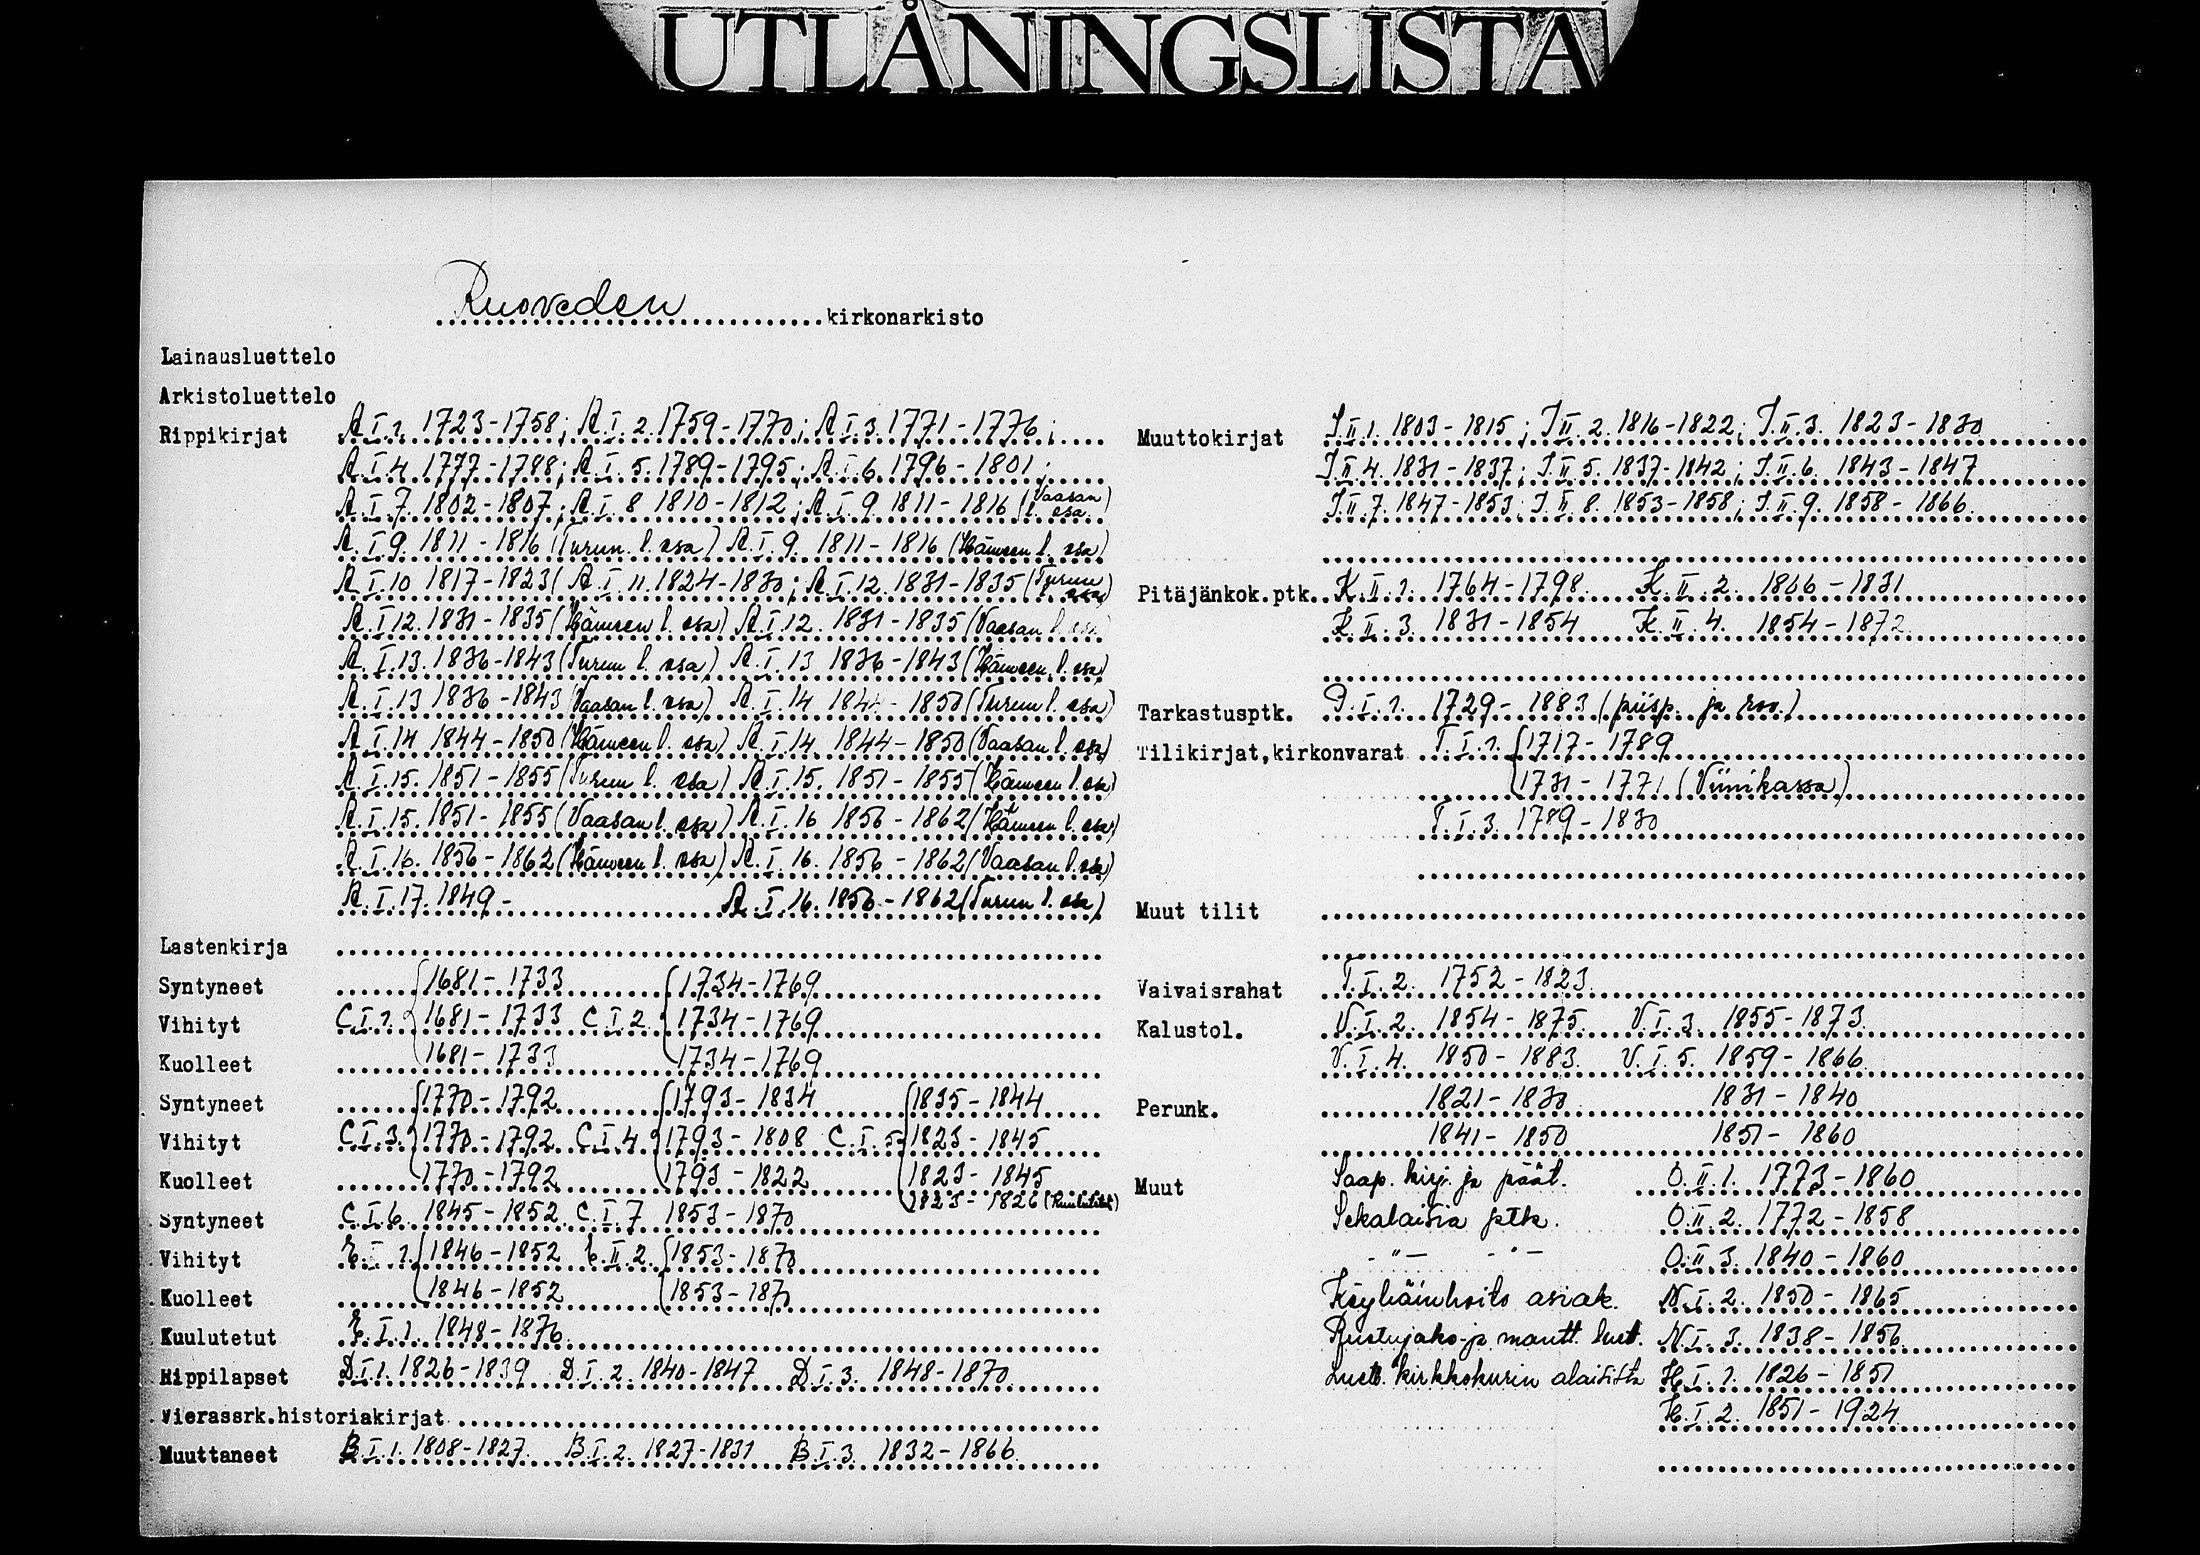 UTLÅNINGSLISTA
Ruoveden kirkonarkisto
Lainausluettelo
Arkistoluettelo
Rippikirjat A I 1. 1723-1758; A I. 2. 1759-1770; A I 3. 1771-1776;
A. I. 4. 1777-1788; A. I. 5. 1789-1795; A. I. 6. 1796-1801;
A. I 7. 1802-1807; A. I. 8 1810-1812; A I. 9 1811-1816 (Vaasan l. osa)
A. I 9. 1811-1816 (Turun. l. osa) A. I. 9. 1811-1816 (Hämeen l. osa)
A I. 10 1817-1823( A. I. 11. 1824-1830; A. I. 12. 1831-1835 (Turun osa)
A. I 12. 1831-1835 (Hämeen l. osa) A. I. 12. 1831-1835 (Vaasan l. osa)
A. I. 13. 1836-1843 (Turun l. osa) A. I. 13 1836-1843 (Hämeen. l. osa)
A. I. 13 1836-1843 (Vaasan l. osa) A. I. 14 1844-1850 (Turun l. osa)
A. I. 14 1844-1850 (Hämeen l. osa) A. I. 14. 1844-1850 (Vaasan l. osa)
A. I. 15. 1851-1855 (Turun l. osa) A. I. 15. 1851-1855 (Hämeen l. osa)
A. I. 15. 1851-1855 (Vaasan l. osa) A. I. 16 1856-1862 (Hämeen l. osa)
A. I. 16. 1856-1862 (Hämeen l. osa) A. I. 16. 1856-1862 (Vaasan l. osa)
A. I. 17. 1849- A. I. 16. 1856-1862 (Turun l. osa)
Lastenkirja
Syntyneet 1681-1733 1734-1769
Vihityt C. I. 1. 1681-1733 C I 2. 1734-1769
Kuolleet 1681-1733 1734-1769
Syntyneet 1770-1792 1793-1834 1835-1844
Vihityt C. I. 3. 1770-1792 C. I. 4. 1793-1808 C. I. 5 1823-1845
Kuolleet 1770-1792 1793-1822 1823-1845
1823-1826
Syntyneet C. I. 6. 1845-1852 C. I. 7 1853-1870
Vihityt E. I 1. 1846-1852 E. II. 2. 1853-1870
Kuolleet 1846-1852 1853-1870
Kuulutetut E. I. 1. 1848-1876
Rippilapset D. I. 1. 1826-1839 D. I. 2. 1840-1847 D. I. 3. 1848-1870
Vierassrk.historiakirjat
Muuttaneet B. I. 1. 1808-1827. B. I. 2. 1827-1831 B. I. 3 1832-1866
Muuttokirjat J. II. 1. 1803-1815; J II. 2. 1816-1822; J. II. 3. 1823-1830
J. II. 4. 1831-1837; J. II 5. 1837-1842; J. II. 6. 1843-1847
J. II. 7. 1847-1853; J. II. 8. 1853-1858; J. II. 9. 1858-1866
Pitäjänkok.ptk. K. II. 1. 1764-1798. K. II. 2. 1806-1831
K. II. 3. 1831-1854 K. II. 4. 1854-1872
Tarkastusptk. D. I. 1. 1729-1883 (piisp. ja rov.)
Tilikirjat,kirkonvarat T. I. 1. 1717-1789
1731-1771 (Viinikassa)
T. I. 3. 1789-1830
Muut tilit
Vaivaisrahat T. I. 2. 1752-1823
Kalustol. V. I. 2. 1854-1875. V. I. 3. 1855-1873.
V. I. 4. 1850-1883. V. I. 5. 1859-1866
Perunk. 1821-1830 1831-1840
1841-1850 1851-1860
Muut Saap. kirj. ja päät. O. II. 1. 1773-1860
Sekalaisia ptk. O. II. 2. 1772-1858
-"- -"- O. II. 3. 1840-1860
Köyhäinhoito asiak. N. I. 2. 1850-1865
Ruotujako- ja mantt. luet. N. I. 3. 1838-1856
Luett. kirkkokurin alaisista H. I. 1. 1826-1851
H. I. 2. 1851-1924